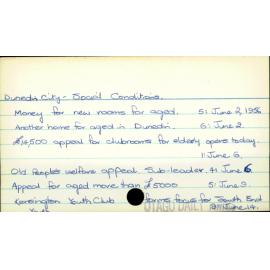 Dunedin City - Social Conditions.
Money for new rooms for aged. 5: June 2, 1956
Another home for aged in Dunedin. 6: June 2.
£14,500 appeal for clubrooms for elderly opens today.
1: June 6.
Old People's welfare appeal. Sub-leader. 4: June 6.
Appeal for aged more than £5000 5: June 9.
Kensington Youth Club forms focus for South End
June 14.
OTAGO DAILY